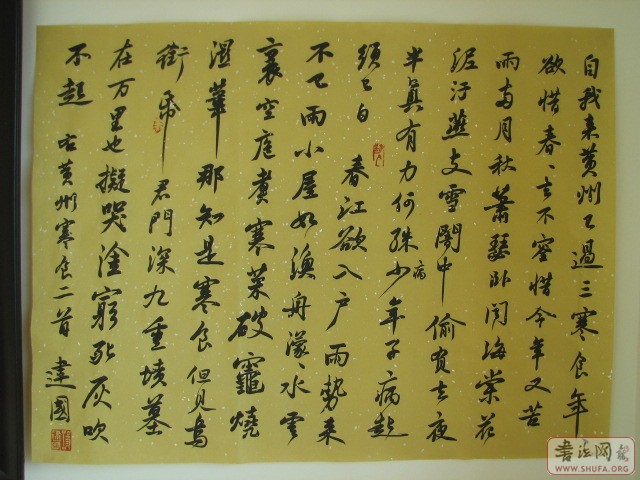 自我来黄州已過三寒食年
欲惜春、去不容惜今年又苦
雨两月秋蕭瑟卧闻海棠花
泥汙燕支雪闇中偷負去夜
半真有力何殊少年子病起
病
頭已白 春江欲入户雨勢来
不已雨小屋如漁舟濛、水雲
裏空庖煮寒菜破竈燒
濕葦那知是寒食但見烏
銜帋 君門深九重墳墓
在万里也擬哭塗窮死灰吹
不起 右黄州寒食二首 建國
书法网
WWW.SHUFA.ORG